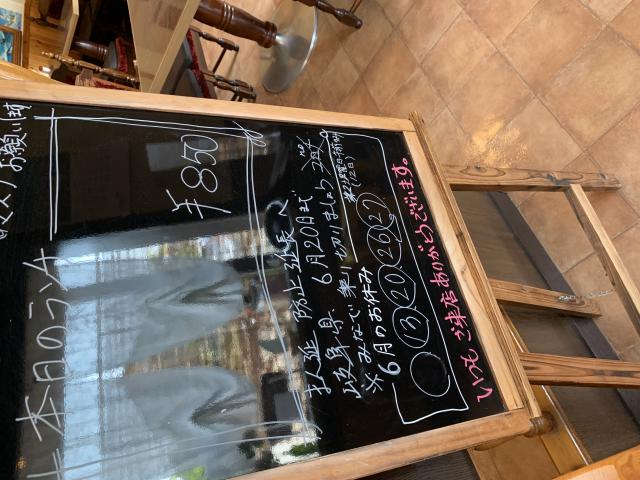 マスクお願いします
本日のランチ
¥850
まん延防止延長
岐阜県 6月20日まで
※みんなで乗り切りましょう
6月のお休み
(12日)
13 20 26 27
いつもご来店ありがとうございます。